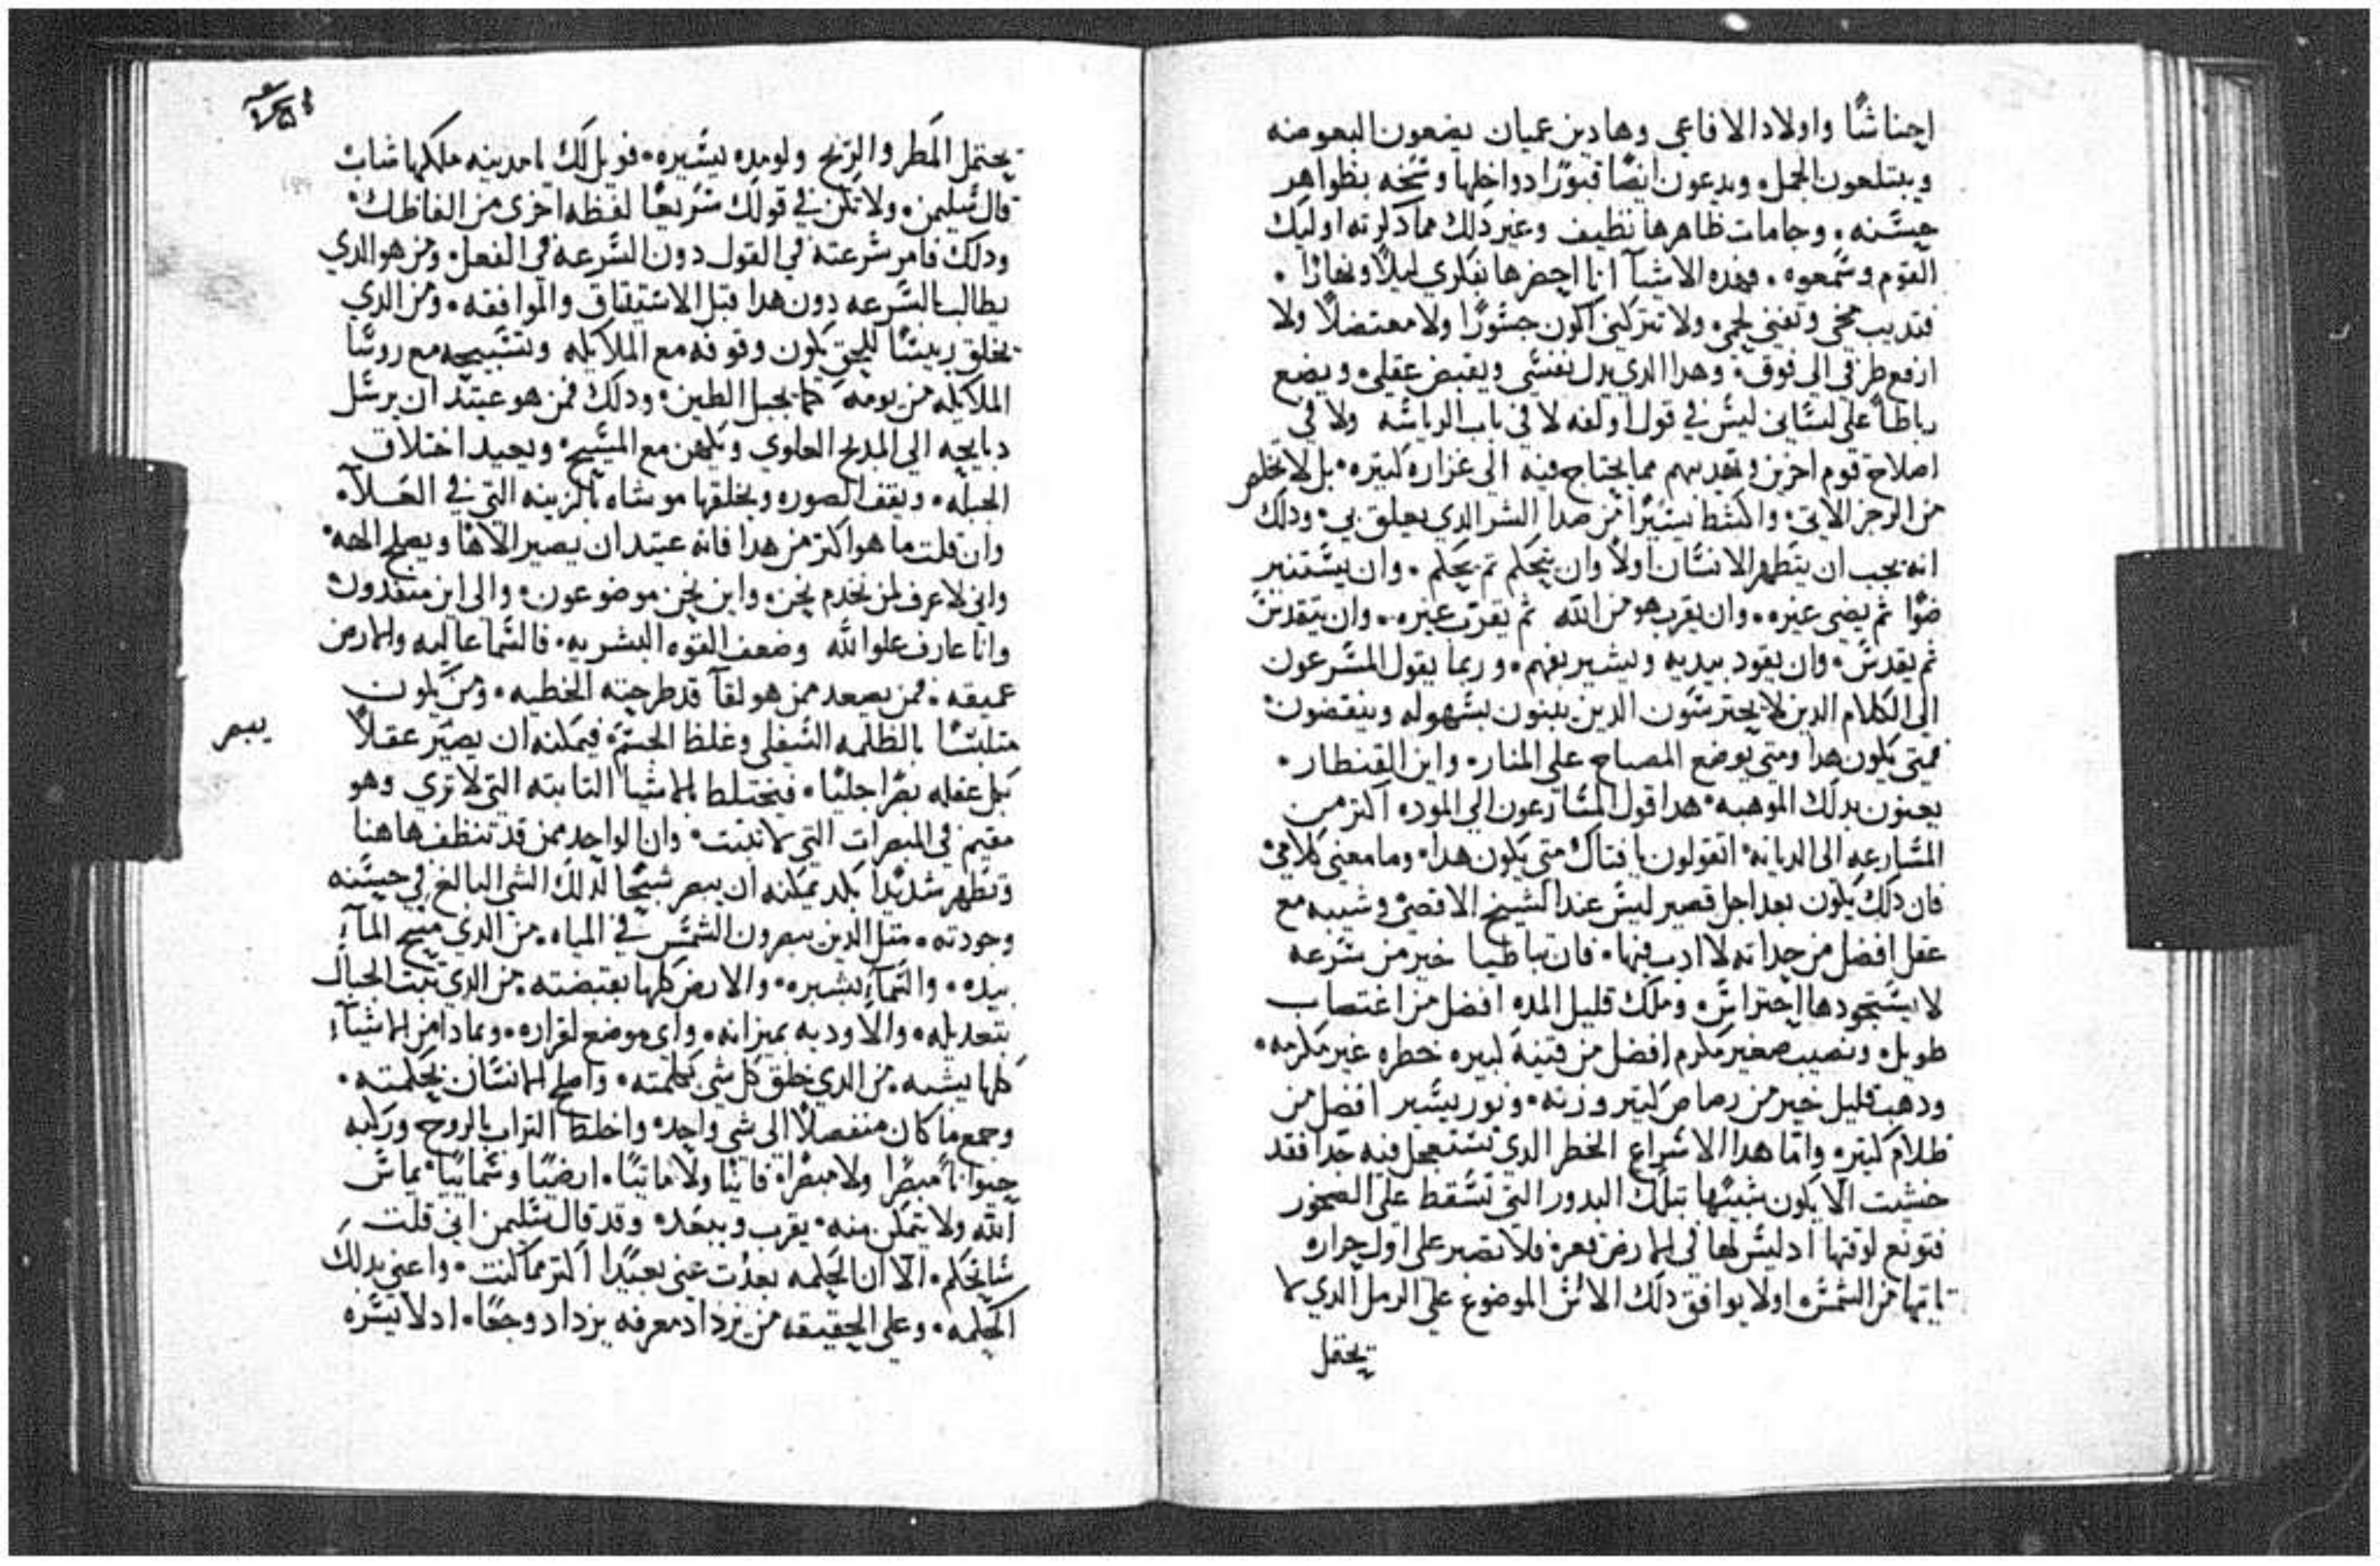 اجناسًا واولاد الافاعي وهادين عميان يضعون البعوضه
ويبتلعون الجمل ويدعون ايضًا قبورًا دواخلها وسخه بظواهر
حسنه. وجامات ظاهرها نظيف وغير ذلك مما ذكرته اوليك
القوم وسمعوه. فهذه الاشيآ انا احضرها بفكري ليلًا ونهارًا.
فتديب مخي وتفني لحمي ولا تتركني اكون جسورًا ولا معتضلًا ولا
ارفع طرفي الي فوق وهدا الدي يدل نفسي ويقبض عقلي ويضع
رباطًا علي لساني ليس في قول اولفه لا في باب الرياسه ولا في
اصلاح قوم اخرين وتهديبهم مما يحتاج فيه الي غزاره كبيره بل لاتخلص
من الرجز الاتي واكشط يسيرًا من صدا الشر الدي يعلق بي ودلك
انه يجب ان يتطهر الانسان اولًا وان يتحكم ثم يحكم. وان يستنير
ضوًا ثم يضي غيره. وان يقرب هو من الله ثم يقرب غيره. وان يتقدس
ثم يقدس. وان يقود بيديه ويشير بفهم. وربما يقول المسرعون
الي الكلام الدين لا يحترسون الدين يبنون بسهوله وينقضون
فمتي يكون هدا ومتي يوضع المصباح علي المناره واين القنطار.
يعنون بدلك الموهبه هدا قول المسارعون الي الموده اكتر من
المسارعه الي الديانه اتقولون يا فتاك متي يكون هدا وما معني كلامي
فان دلك يكون بعد اجل قصير ليس عند الشيخ الاقصي وشيبه مع
عقل افضل من حداته لا ادب فيها. فان تباطيا خير من سرعه
لا يستجودها احتراس وملك قليل المده افضل من اغتصاب
طويل ونصيب صغير مكرم افضل من قنيه كبيره خطره غير مكرمه
ودهب قليل خير من رصاص كتير وزنه ونور يسير افضل من
ظلام كتير. واما هدا الاسراع الخطر الدي تستعجل فيه جدًا فقد
خشيت الا يكون شبيهًا بتلك البدور التي تسقط علي الصخور
فتونع لوقتها اد ليس لها في الارض فلا تصبر علي اول حراره
تاتيها من الشمس اولا يوافق دلك الاس الموضوع علي الرمل الدي لا
يحتمل
يحتمل المطر والريح ولو مده يسيره فويل لك يا مدينه ملكها شاب
قال سليمن ولا تكن في قولك سريعًا لفظه اخري من الفاظك
ودلك فامر سرعته في القول دون السرعه في الفعل ومن هو الدي
يطالب بالسرعه دون هدا قبل الاستيقاق والموافقه ومن الدي
يخلق رييسًا للحق يكون وقوفه مع الملايكه وتسبيحه مع روسا
الملايكه من يومه كما يجبل الطين ودلك فمن هو عتيد ان يرسل
دبايحه الي المدبح العلوي ويكهن مع المسيح ويعيد اختلاق
الجبله ويقف الصوره ويخلقها موشاه بالزينه التي في العلآ
وان قلت ما هو اكتر من هدا فانه عتيد ان يصير الاهًا ويصلح الهه
واني لاعرف لمن نخدم نحن واين نحن موضوعون والي اين منقدون
وانا عارف علو الله وضعف القوه البشريه فالسما عاليه والارض
عميقه فمن يصعد ممن هو لقا قد طرحته الخطيه ومن يكون
متلبسًا بالظلمه السفلي وغلظ الجسم فيمكنه ان يصير عقلًا
يبصر
بكل عقله بصرًا جليًا. فيختلط بالاشيا التابته التي لا تري وهو
مقيم في المبصرات التي لا تتبت وان الواحد ممن قد تنظف هاهنا
وتطهر شديدًا بكد يمكنه ان يبصر شبحًا لدلك الشي البالغ في حسنه
وجودته متل الدين يبصرون الشمس في المياه. من الدي مسح المآ
بيده والسمآ بشبره والارض كلها بقبضته من الدي تبت الجبال
بتعديله والاوديه بميزانه واي موضع لقراره وبمادا من الاشيآ
كلها يشبه. من الدي خلق كل شي بكلمته واصلح الانسان بحكمته.
وجمع ما كان منفصلًا الي شي واحد واخلط التراب بالروح وركبه
حيوانًا مبصرًا ولا مبصرًا فانيًا ولا مايتًا ارضيًا وسمايًا يماس
الله ولا يتمكن منه يقرب ويبعده وقد قال سليمن اني قلت
ساتحكم الا ان الحكمه بعدت عني بعيدًا اكتر مما كنت واعني بدلك
الحكمه. وعلي الحقيقه من يزداد معرفه يزداد وجعًا اد لا يسره